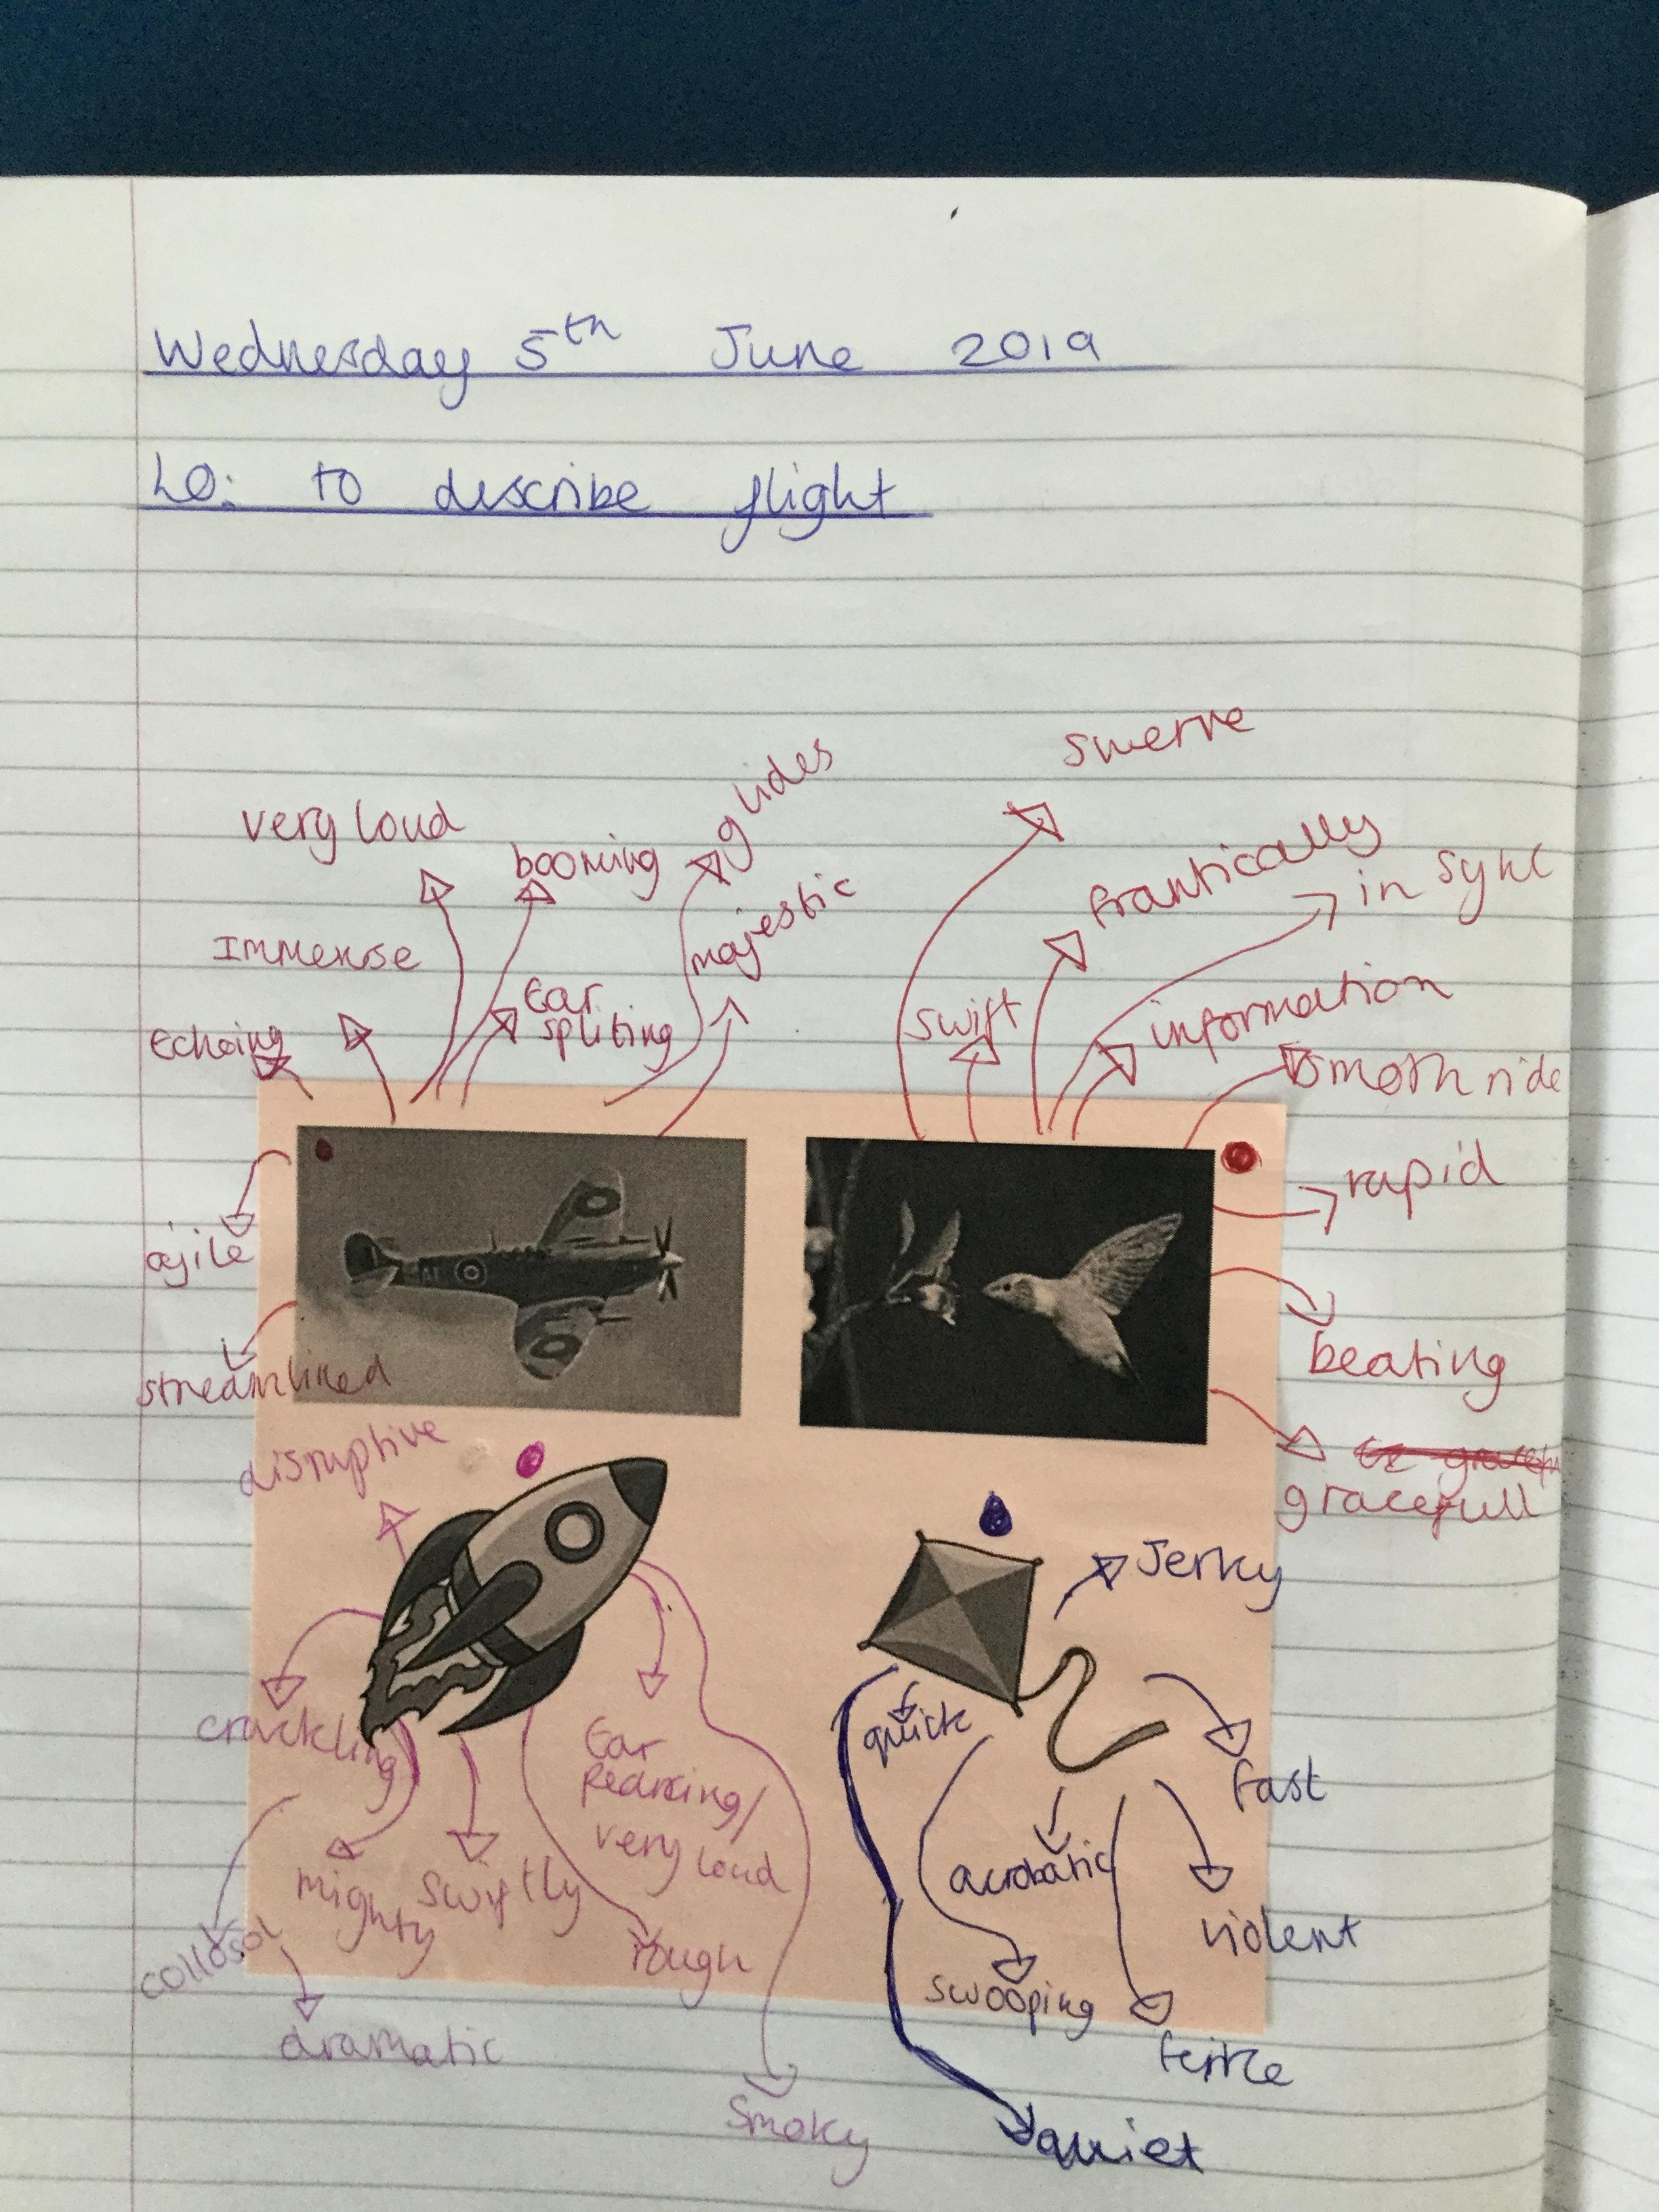 Wednesday 5th June 2019
LO: to describe flight
swerve
glides
very loud
booming
frantically
in sync
majestic
Immense
Ear
spliting
swift
information
echoing
smoth ride
rapid
ajile
beating
streamlined
disruptive
gracefull
Jerky
crackling
quick
Ear
Pearcing/
very loud
fast
mighty
swiftly
acrobatic
violent
collosol
rough
swooping
dramatic
ferice
Smoky
quiet